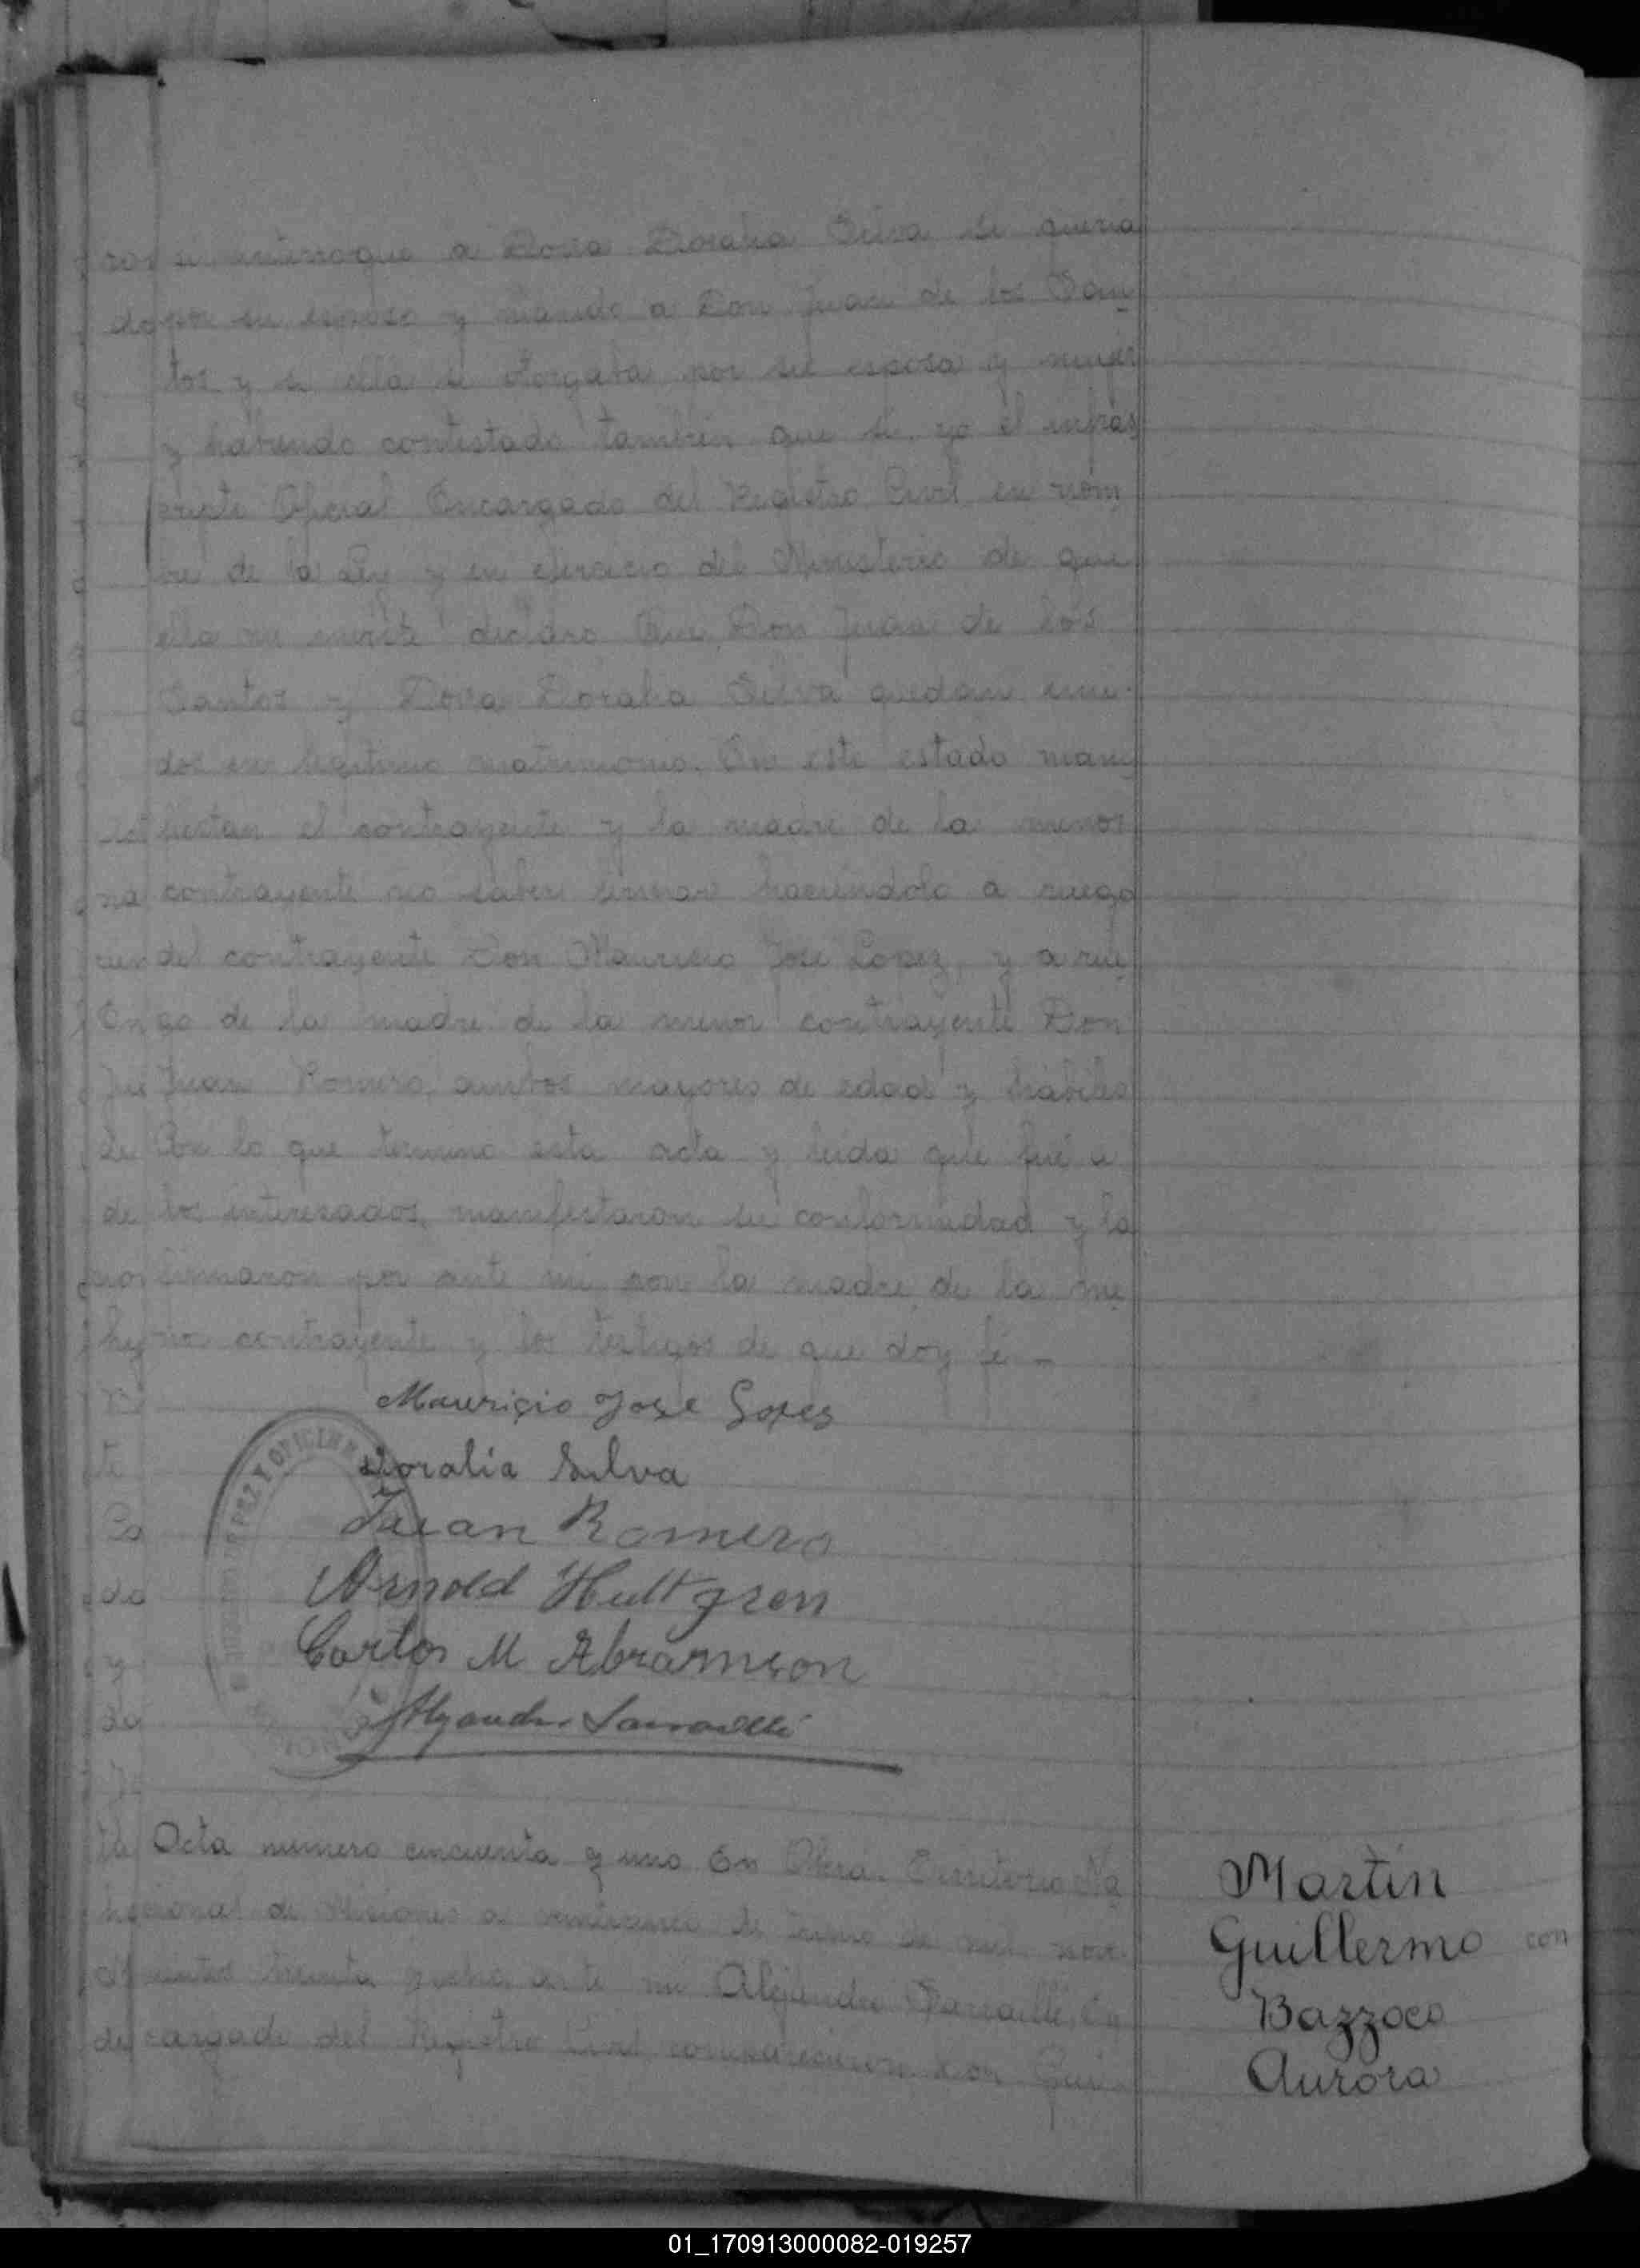 a Doña Doralia Silva si queria
por su esposo y marido a Don Juan de los San
tos y si ella se otorgaba por su esposa y mujer
y habiendo contestado tambien que si, yo el infras
cripto Oficial Encargado del Registro Civil en nom
bre de la Ley y en ejercicio del Ministerio de que
ella me inviste declaro Que Don Juan de los
Santos y Doña Doralia Silva quedan uni-
dos en legitimo matrimonio. En este estado mani
fiestan el contrayente y la madre de la menor
contrayente no saber firmar haciéndolo a ruego
del contrayente Don Mauricio José Lopez, y a rue
go de la madre de la menor contrayente Don
Juan Romero, ambos mayores de edad y habiles
Con lo que termino esta acta y leida que fué a
los interesados, manifestaron su conformidad y la
firmaron por ante mi con la madre de la me
nor contrayente y los testigos de que doy fé -
Mauriçio Jose Gopes
Doralia Silva
Juan Romero
Arnold Hultgren
Carlos M Abramson
Acta numero cincuenta y uno En Oberá. Territorio Na
cional de Misiones a de Junio de mil nove
cientos treinta y ocho ante mi Alejandro
cargado del Registro Civil comparecieron Don Gui-
Martin
Guillermo con
Bazzoco
Aurora
01_170913000082-019257